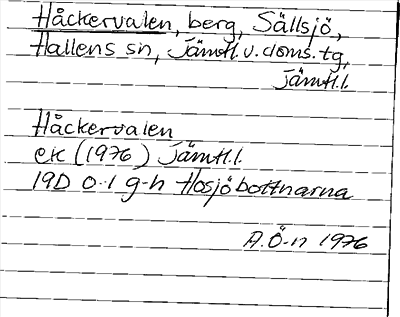 Håckervalen, berg, Sällsjö,
Hallens sn, Jämtl.v.doms.tg,
Jämtl.l.
Håckervalen
ek (1976) Jämtl.l.
19D 0-1 g-h Hosjöbottnarna
A.Ö-n 1976